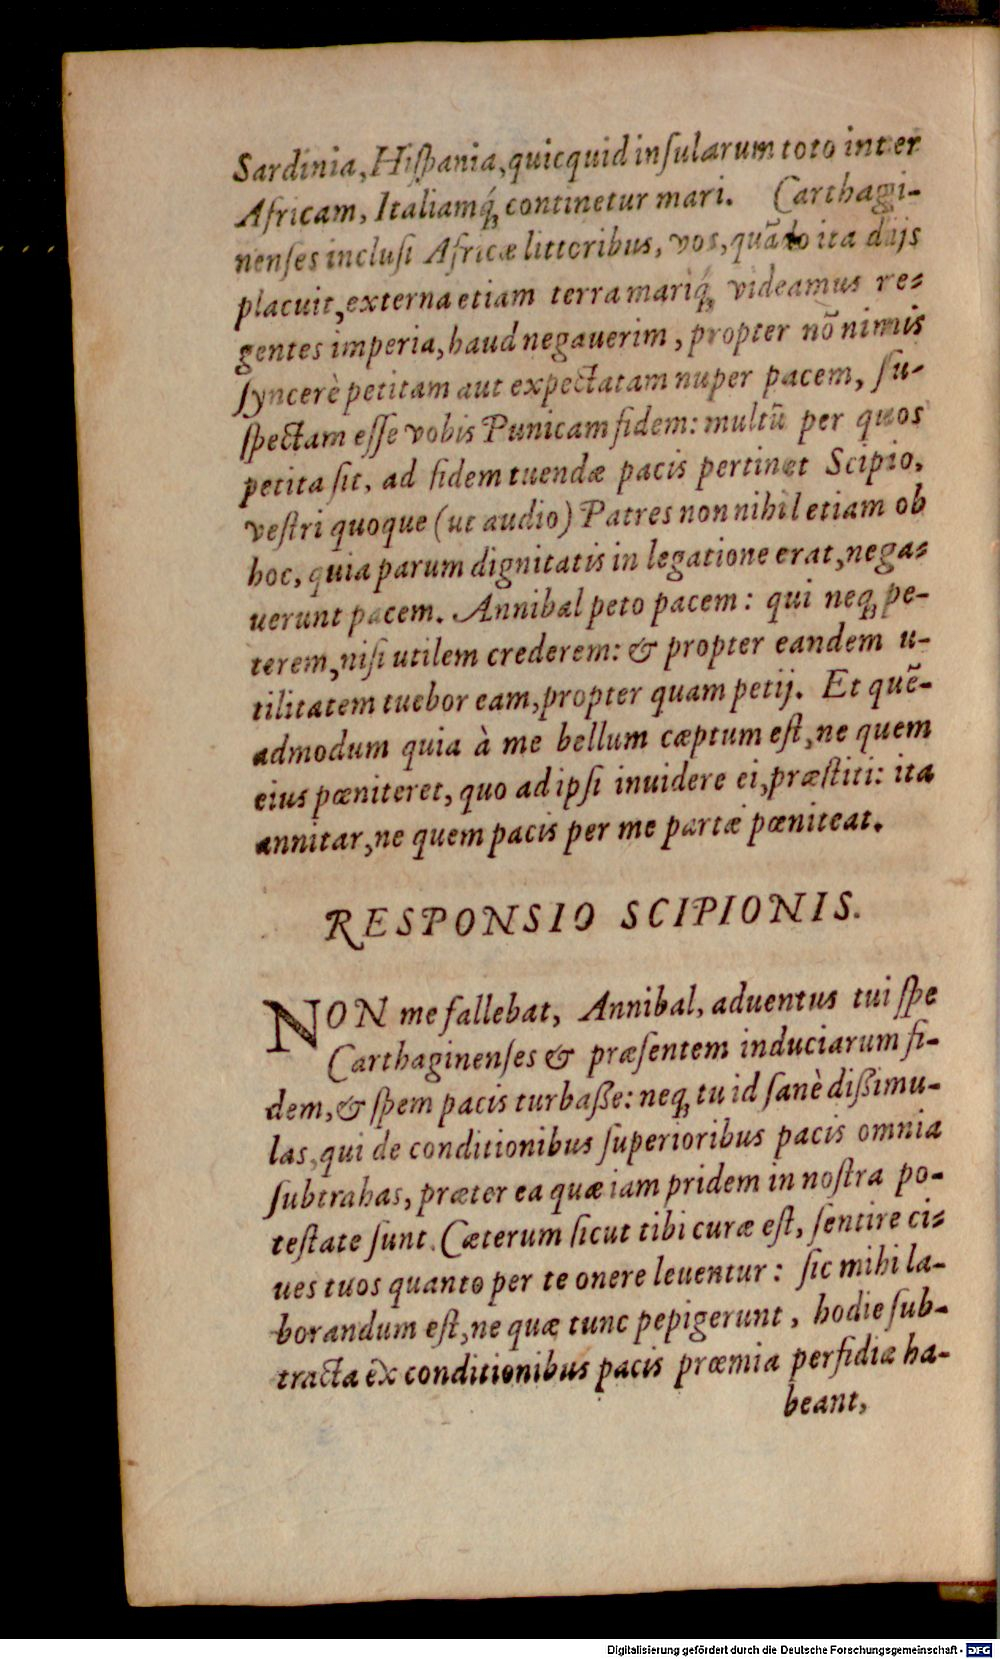 Sardinia, Hiſpania, quicquid inſularum toto inter
Africam, Italiamq́ꝫ continetur mari. Carthagi-
nenſes incluſi Africæ littoribus, vos, quãdo ita dijs
placuit, externa etiam terra mariq́ꝫ videamus re-
gentes imperia, haud negauerim, propter nõ nimis
ſyncerè petitam aut expectatam nuper pacem, ſu-
ſpectam eſſe vobis Punicam fidem: multũ per quos
petita ſit, ad fidem tuendæ pacis pertinet Scipio,
veſtri quoque (ut audio) Patres non nihil etiam ob
hoc, quia parum dignitatis in legatione erat, nega-
uerunt pacem. Annibal peto pacem: qui neqꝫ pe-
terem, niſi utilem crederem: & propter eandem u-
tilitatem tuebor eam, propter quam petij. Et quẽ-
admodum quia à me bellum cæptum eſt, ne quem
eius pœniteret, quo ad ipſi inuidere ei, præſtiti: ita
annitar, ne quem pacis per me partæ pœniteat.
RESPONSIO SCIPIONIS.
NON me fallebat, Annibal, aduentus tui ſpe
Carthaginenſes & præſentem induciarum fi-
dem, & ſpem pacis turbaße: neqꝫ tu id ſanè dißimu-
las, qui de conditionibus ſuperioribus pacis omnia
ſubtrahas, præter ea quæ iam pridem in noſtra po-
teſtate ſunt. Cæterum ſicut tibi curæ eſt, ſentire ci-
ues tuos quanto per te onere leuentur: ſic mihi la-
borandum eſt, ne quæ tunc pepigerunt, hodie ſub-
tracta ex conditionibus pacis præmia perfidiæ ha-
beant,
Digitalisierung gefördert durch die Deutsche Forschungsgemeinschaft - DFG